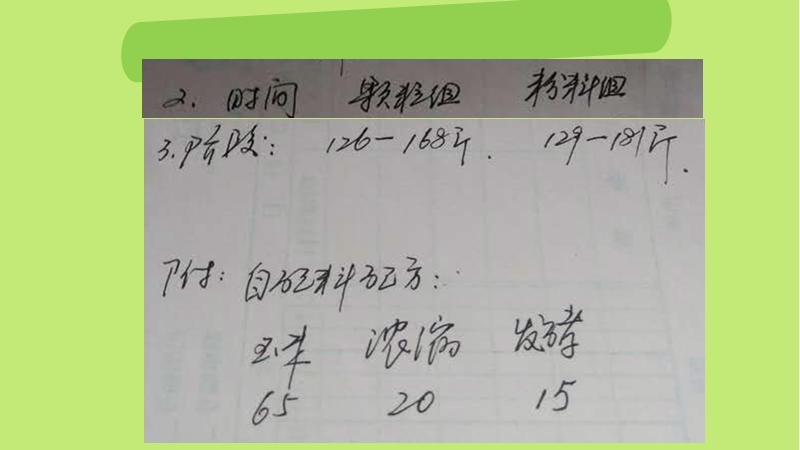 2. 时间 颗粒组 粉料组
3.阶段: 126-168斤. 129-181斤.
附: 自配料配方:
玉米 浓缩 发酵
65 20 15